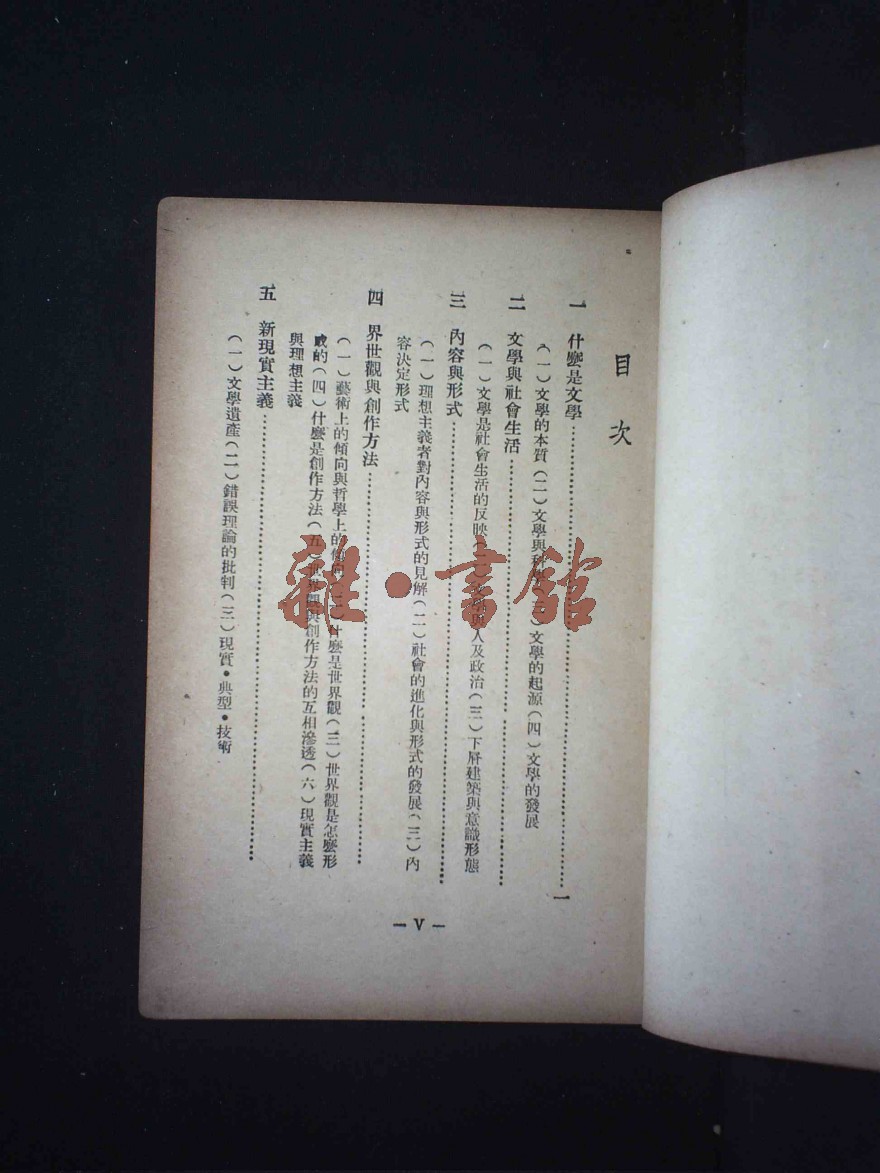 目次
一 什麼是文學…………一
(一)文學的本質(二)文學與科學(三)文學的起源(四)文學的發展
二 文學與社會生活…………
(一)文學是社會生活的反映(二)人及政治(三)下層建築與意識形態
三 內容與形式…………
(一)理想主義者對內容與形式的見解(二)社會的進化與形式的發展(三)內
容決定形式
四 界世觀與創作方法…………
(一)藝術上的傾向與哲學上的傾向(二)什麼是世界觀(三)世界觀是怎麼形
成的(四)什麼是創作方法(五)世界觀與創作方法的互相滲透(六)現實主義
與理想主義
五 新現實主義…………
(一)文學遺產(二)錯誤理論的批判(三)現實•典型•技術
— V —
雜·書館